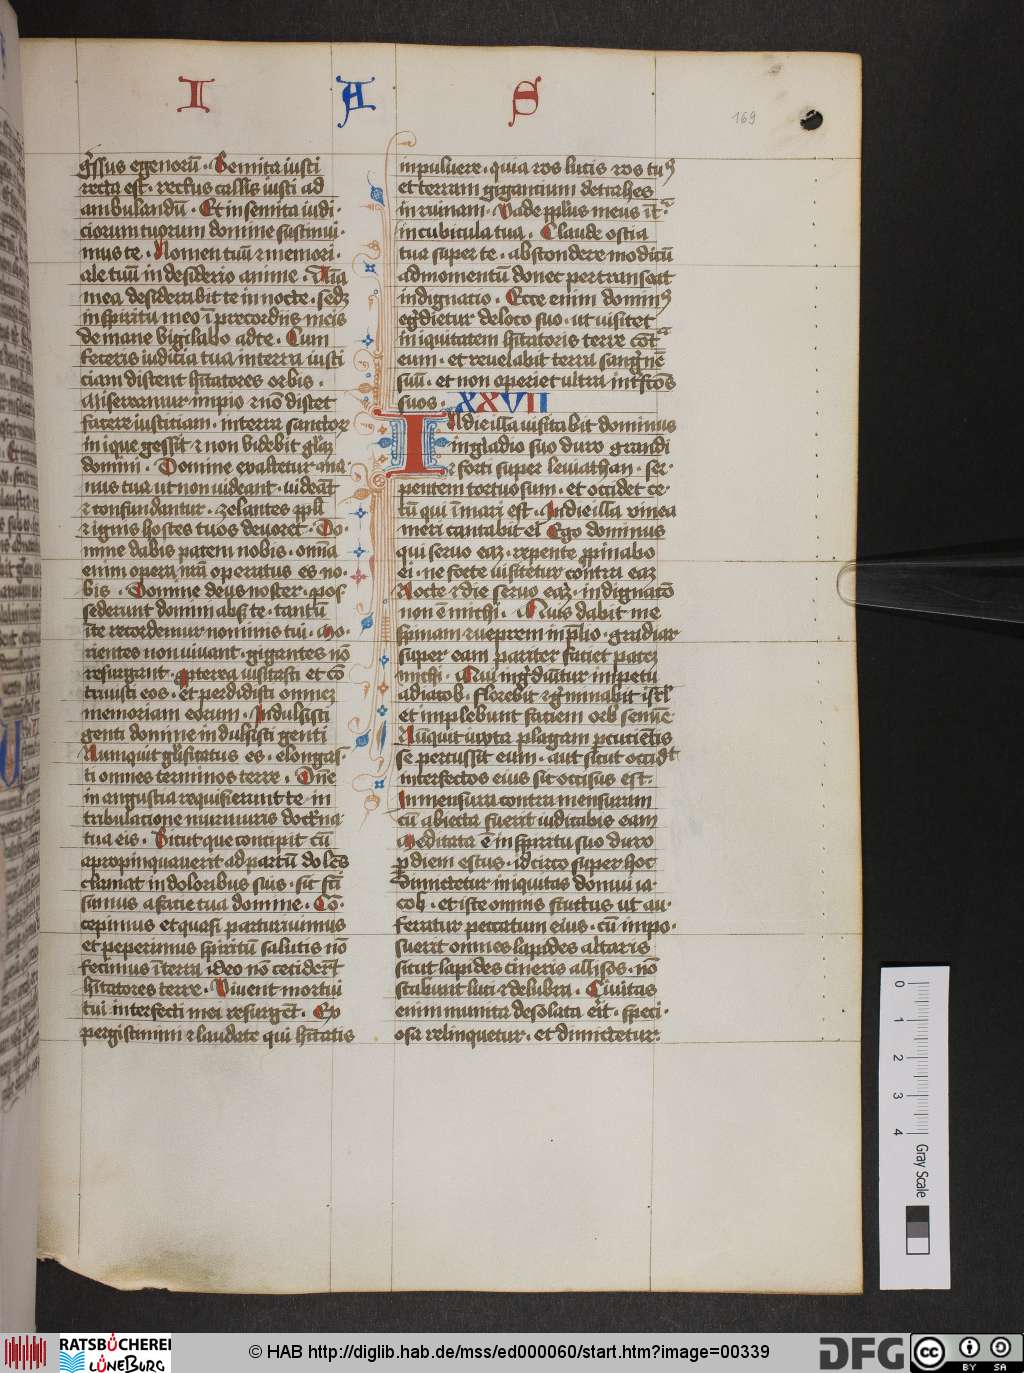 I A S
169
gressus egenorū. Semita iusti
recta est. rectus callis iusti ad
ambulandū. Et in semita iudi-
ciorum tuorum domine sustinui-
mus te. Nomen tuū ⁊ memori-
ale tuū in desiderio anime. Aīa
mea desiderabit te in nocte. sedꝫ
in spiritu meo ī precordiis meis
de mane vigilabo ad te. Cum
feceris iudicia tua in terra iusti
ciam discent hītatores orbis.
Misereamur impio ⁊ nō discet
facere iusticiam. in terra sanctoꝝ
inique gessit ⁊ non videbit gl̄aꝫ
domini. Domine exaltetur ma-
nus tua ut non uideant. uideāt
⁊ confundantur. zelantes ppl̄i
⁊ ignis hostes tuos deuoret. Do-
mine dabis pacem nobis. omīa
enim opera nr̄a operatus es no-
bis. Domine deus noster. pos-
sederunt domini absq; te. tantū
ī te recordemur nominis tui. Mo-
rientes non viuant. gigantes nō
resurgant. Propterea visitasti et cō
triuisti eos. et perdidisti omneꝫ
memoriam eorum. Indulsisti
genti domine indulsisti genti
Numquit gl̄ificatus es. elongas-
ti omnes terminos terre. Dn̄e
in angustia requisierunt te. in
tribulacione murmuris doctr̄na
tua eis. Sicut que concipit cū
apropinquauerit ad partū doles
clamat in doloribus suis. sic fc̄i
sumus a facie tua domine. Cō-
cepimus et quasi parturiuimus
et peperimus spiritū salutis nō
fecimus ī terra ideo nō cecider̄t
hītatores terre. Viuent mortui
tui interfecti mei resurgēt. Ex
pergiscimini ⁊ laudate qui hītatis
in puluere. quia ros lucis ros tuꝰ
et terram gigantium detrahes
in ruinam. Vade pplūs meus īt̄ᵃ
in cubicula tua. Claude ostia
tua super te. abscondere modicū
ad momentū donec pertranseat
indignatio. Ecce enim dominꝰ
egr̄dietur de loco suo. ut uisitet
iniquitatem hītatoris terre cōtᵃ
eum. et reuelabit terra sangͥnē
suū. et non operiet ultra int̄fc̄os
suos. XXVII
In die illa visitabit dominus
in gladio suo duro grandi
⁊ forti super leuiathan. ser-
pentem tortuosum. et occidet ce-
tū qui ī mari est. In die illa vinea
meri cantabit ei Ego dominus
qui seruo eaꝫ. repente propinabo
ei. ne forte uisitetur contra eaꝫ
Nocte ⁊ die seruo eaꝫ. indignatō
non ē michi. Quis dabit me
spinam ⁊ veprem in p̄lio. gradiar
super eam pariter faciet paceꝫ
michi. Qui ingr̄diūtur impetu
ad iacob. Florebit ⁊ gͥminabit isr̄l
et implebunt faciem orb̄ semīe
Nūquit iuxta plagam pcutiētis
se percussit eum. aut sicut occidͭ
interfectos eius sic occisus est.
In mensura contra mensuram
cū abiecta fuerit iudicabis eam
Meditata ē in spiritu suo duro
p diem estus. idcirco super hoc
dimictetur iniquitas domui ia-
cob. et iste omnis fructus ut au-
feratur peccatum eius. cū impo-
suerit omnes lapides altaris
sicut lapides cineris allisos. nō
stabunt luci ⁊ delubra. Ciuitas
enim munita desolata erit. speci-
osa relinquetur. et dimictetur.
0 1 2 3 4 Gray Scale
RATSBÜCHEREI LÜNEBURG
© HAB http://diglib.hab.de/mss/ed000060/start.htm?image=00339
DFG
cc BY SA